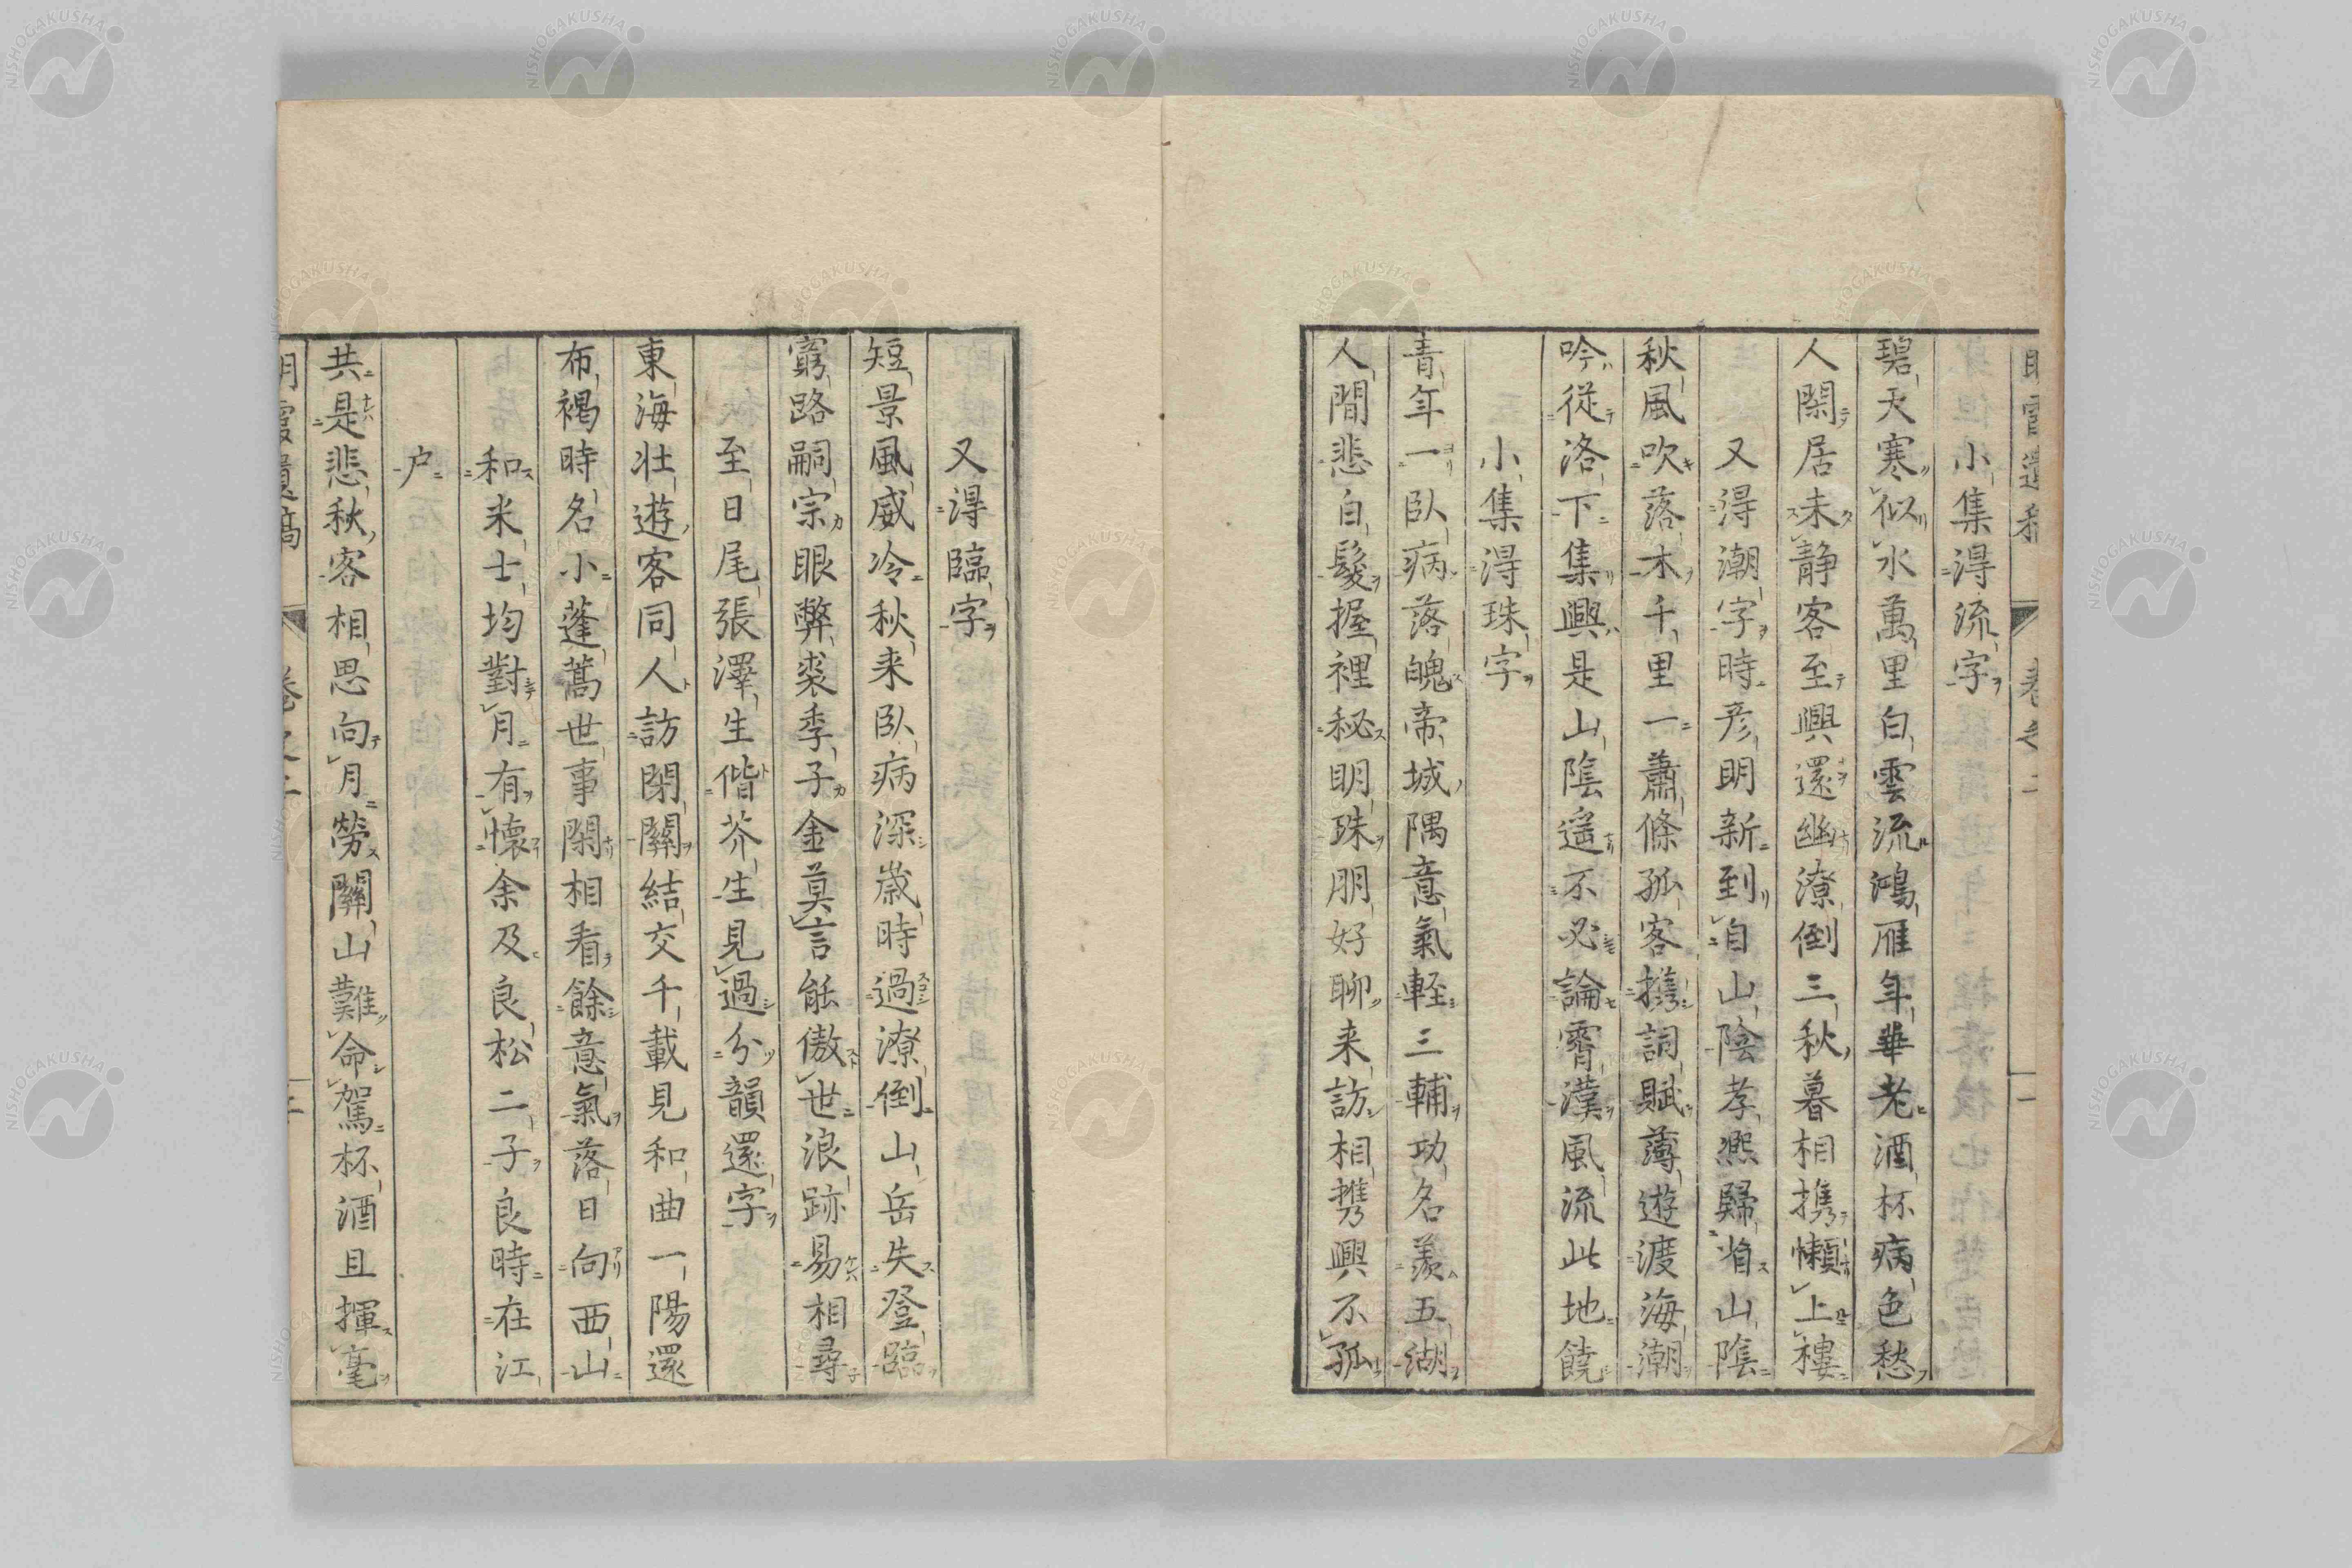 小集得流字
碧天寒似水萬里白雲流鴻雁年華老酒杯病色愁
人閑居未静客至興還幽潦倒三秋暮相携懶上樓
又得潮字時彦明新到自山陰孝熙歸省山陰
秋風吹落木千里一蕭條孤客携詞賦薄遊渡海潮
吟從洛下集興是山陰遥不必論霄漢風流此地饒
小集得珠字
青年一臥病落魄帝城隅意氣軽三輔功名羨五湖
人間悲白髮握裡秘明珠朋好聊来訪相携興不孤
又得臨字
短景風威冷秋来臥病深歳時過潦倒山岳失登臨
窮路嗣宗眼弊裘季子金莫言能傲世浪跡易相尋
至日尾張澤生偕芥生見過分韻還字
東海壮遊客同人訪閉關結交千載見和曲一陽還
布褐時名小蓬蒿世事閑相看餘意氣落日向西山
和米士均對月有懷余及良松二子良時在江
户
共是悲秋客相思向月勞關山難命駕杯酒且揮毫